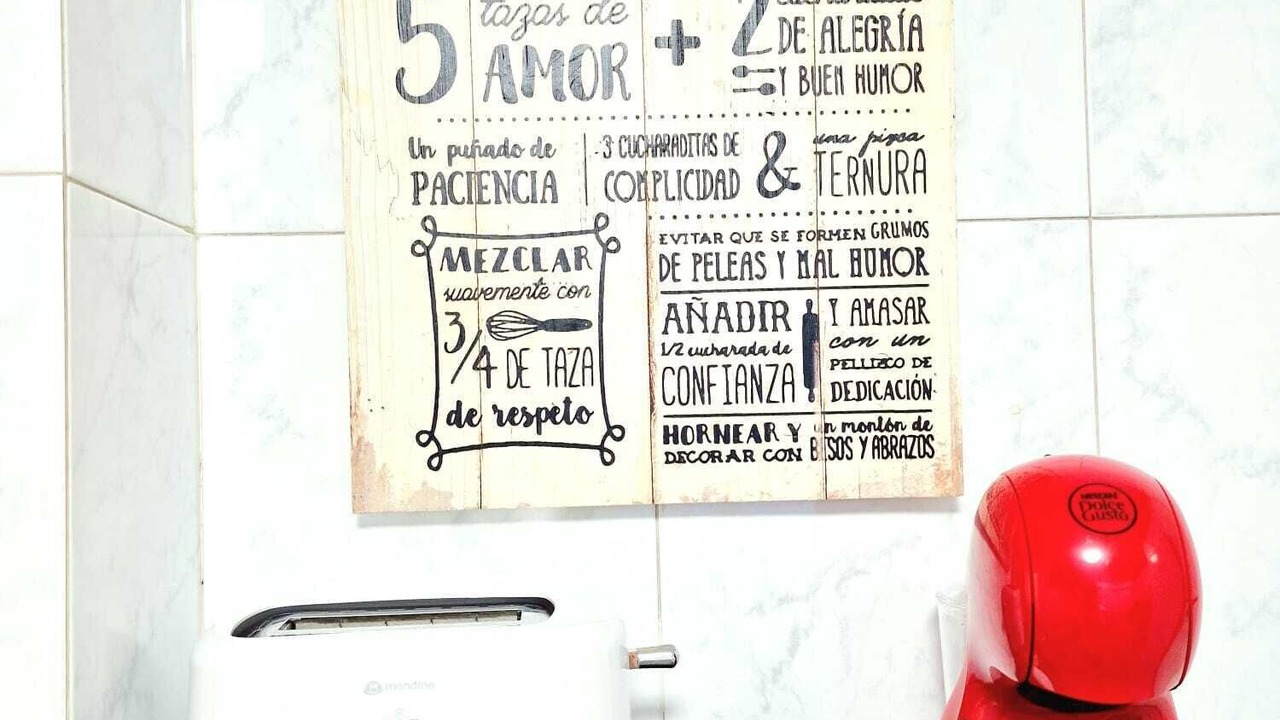 5 tazas de
AMOR
+ 2
DE ALEGRÍA
Y BUEN HUMOR
Un puñado de
PACIENCIA
3 CUCHARADITAS DE
COMPLICIDAD
&
una pizca
TERNURA
MEZCLAR
suavemente con
3/4 DE TAZA
de respeto
EVITAR QUE SE FORMEN GRUMOS
DE PELEAS Y MAL HUMOR
AÑADIR
1/2 cucharada de
CONFIANZA
Y AMASAR
con un
PELLIZCO DE
DEDICACIÓN
HORNEAR Y un montón de
DECORAR CON BESOS Y ABRAZOS
NESCAFÉ
Dolce
Gusto
mondine